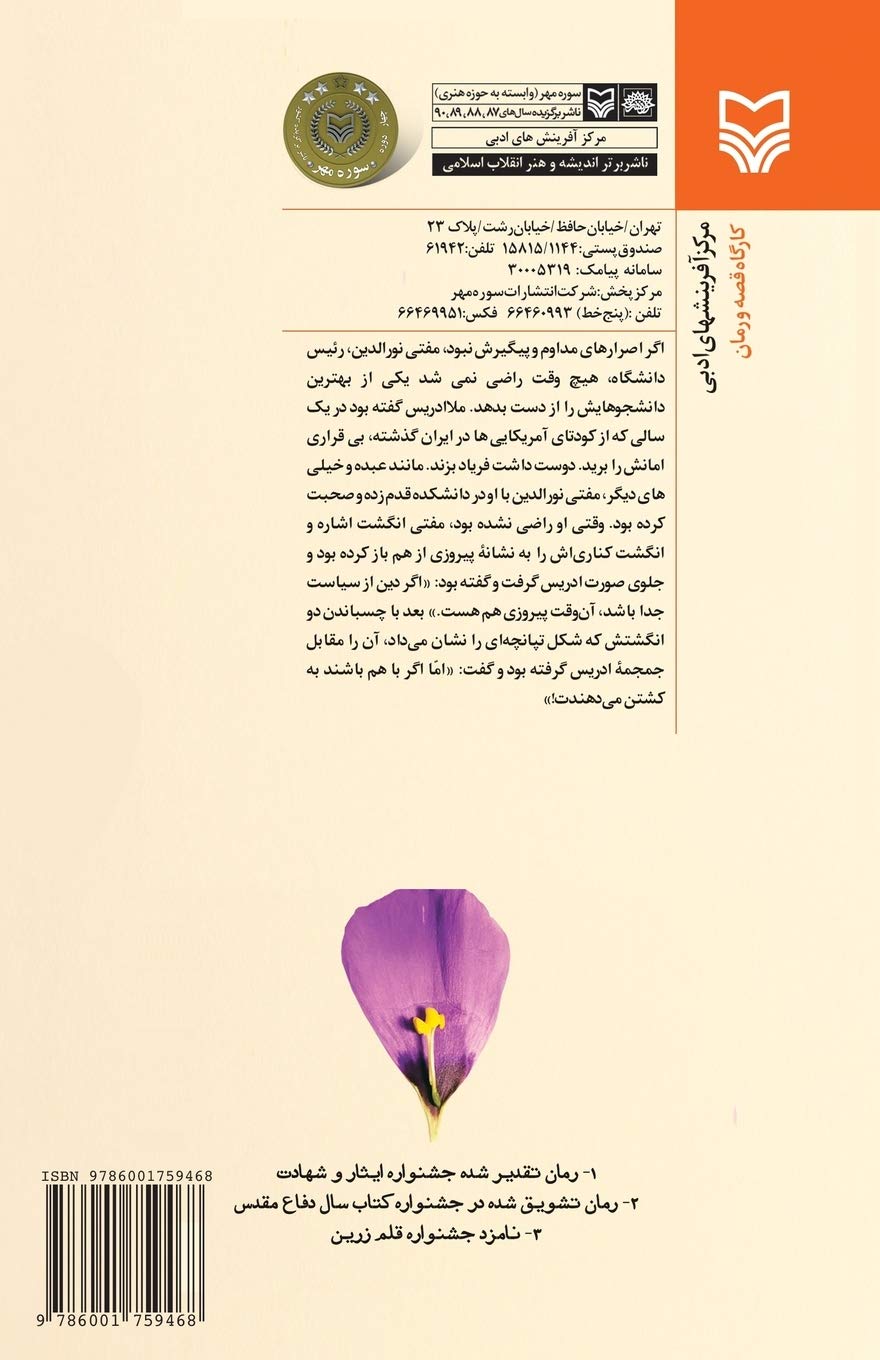 سوره مهر (وابسته به حوزه هنری)
ناشر برگزیده سال‌های ۸۷، ۸۸، ۸۹، ۹۰
مرکز آفرینش های ادبی
ناشر برتر اندیشه و هنر انقلاب اسلامی
چهار دوره
سوره مهر
مرکز آفرینشهای ادبی
کارگاه قصه و رمان
تهران/خیابان حافظ/خیابان رشت/پلاک ۲۳
صندوق پستی: ۱۵۸۱۵/۱۱۴۴ تلفن: ۶۱۹۴۲
سامانه پیامک: ۳۰۰۰۵۳۱۹
مرکز پخش: شرکت انتشارات سوره مهر
تلفن: (پنج خط) ۶۶۴۶۰۹۹۳ فکس: ۶۶۴۶۹۹۵۱
اگر اصرارهای مداوم و پیگیرش نبود، مفتی نورالدین، رئیس
دانشگاه، هیچ وقت راضی نمی شد یکی از بهترین
دانشجوهایش را از دست بدهد. ملاادریس گفته بود در یک
سالی که از کودتای آمریکایی ها در ایران گذشته، بی قراری
امانش را برید. دوست داشت فریاد بزند. مانند عبده و خیلی
های دیگر، مفتی نورالدین با او در دانشکده قدم زده و صحبت
کرده بود. وقتی او راضی نشده بود، مفتی انگشت اشاره و
انگشت کناری‌اش را به نشانهٔ پیروزی از هم باز کرده بود و
جلوی صورت ادریس گرفت و گفته بود: «اگر دین از سیاست
جدا باشد، آن‌وقت پیروزی هم هست.» بعد با چسباندن دو
انگشتش که شکل تپانچه‌ای را نشان می‌داد، آن را مقابل
جمجمهٔ ادریس گرفته بود و گفت: «امّا اگر با هم باشند به
کشتن می‌دهندت!»
۱- رمان تقدیر شده جشنواره ایثار و شهادت
۲- رمان تشویق شده در جشنواره کتاب سال دفاع مقدس
۳- نامزد جشنواره قلم زرین
ISBN 9786001759468
9 786001 759468